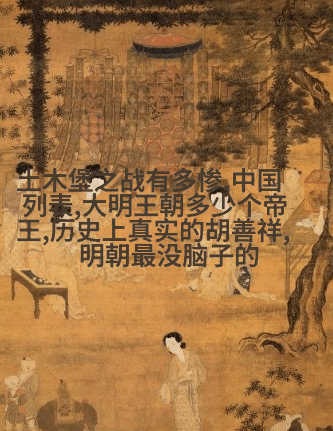 土木堡之战有多惨,中国
列表,大明王朝多少个帝
王,历史上真实的胡善祥,
明朝最没脑子的